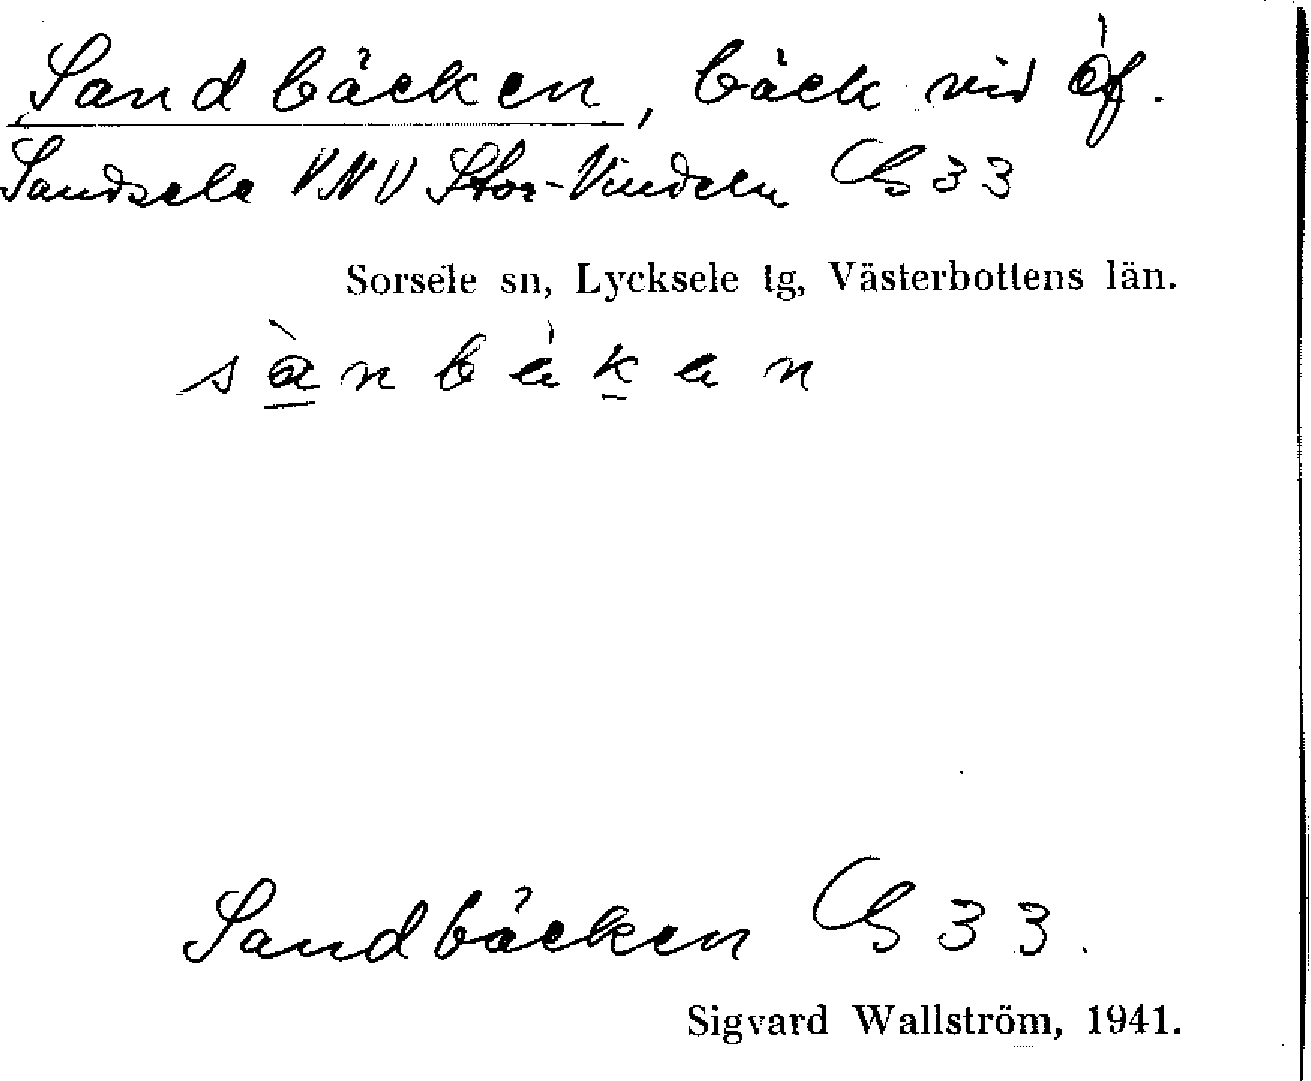 Sandbäcken, bäck vid
Sandsele VNV Stor-Vindeln Gs 33
Sorsele sn, Lycksele lg, Västerbottens län.
Sandbäcken Gs 33.
Sigvard Wallström, 1941.